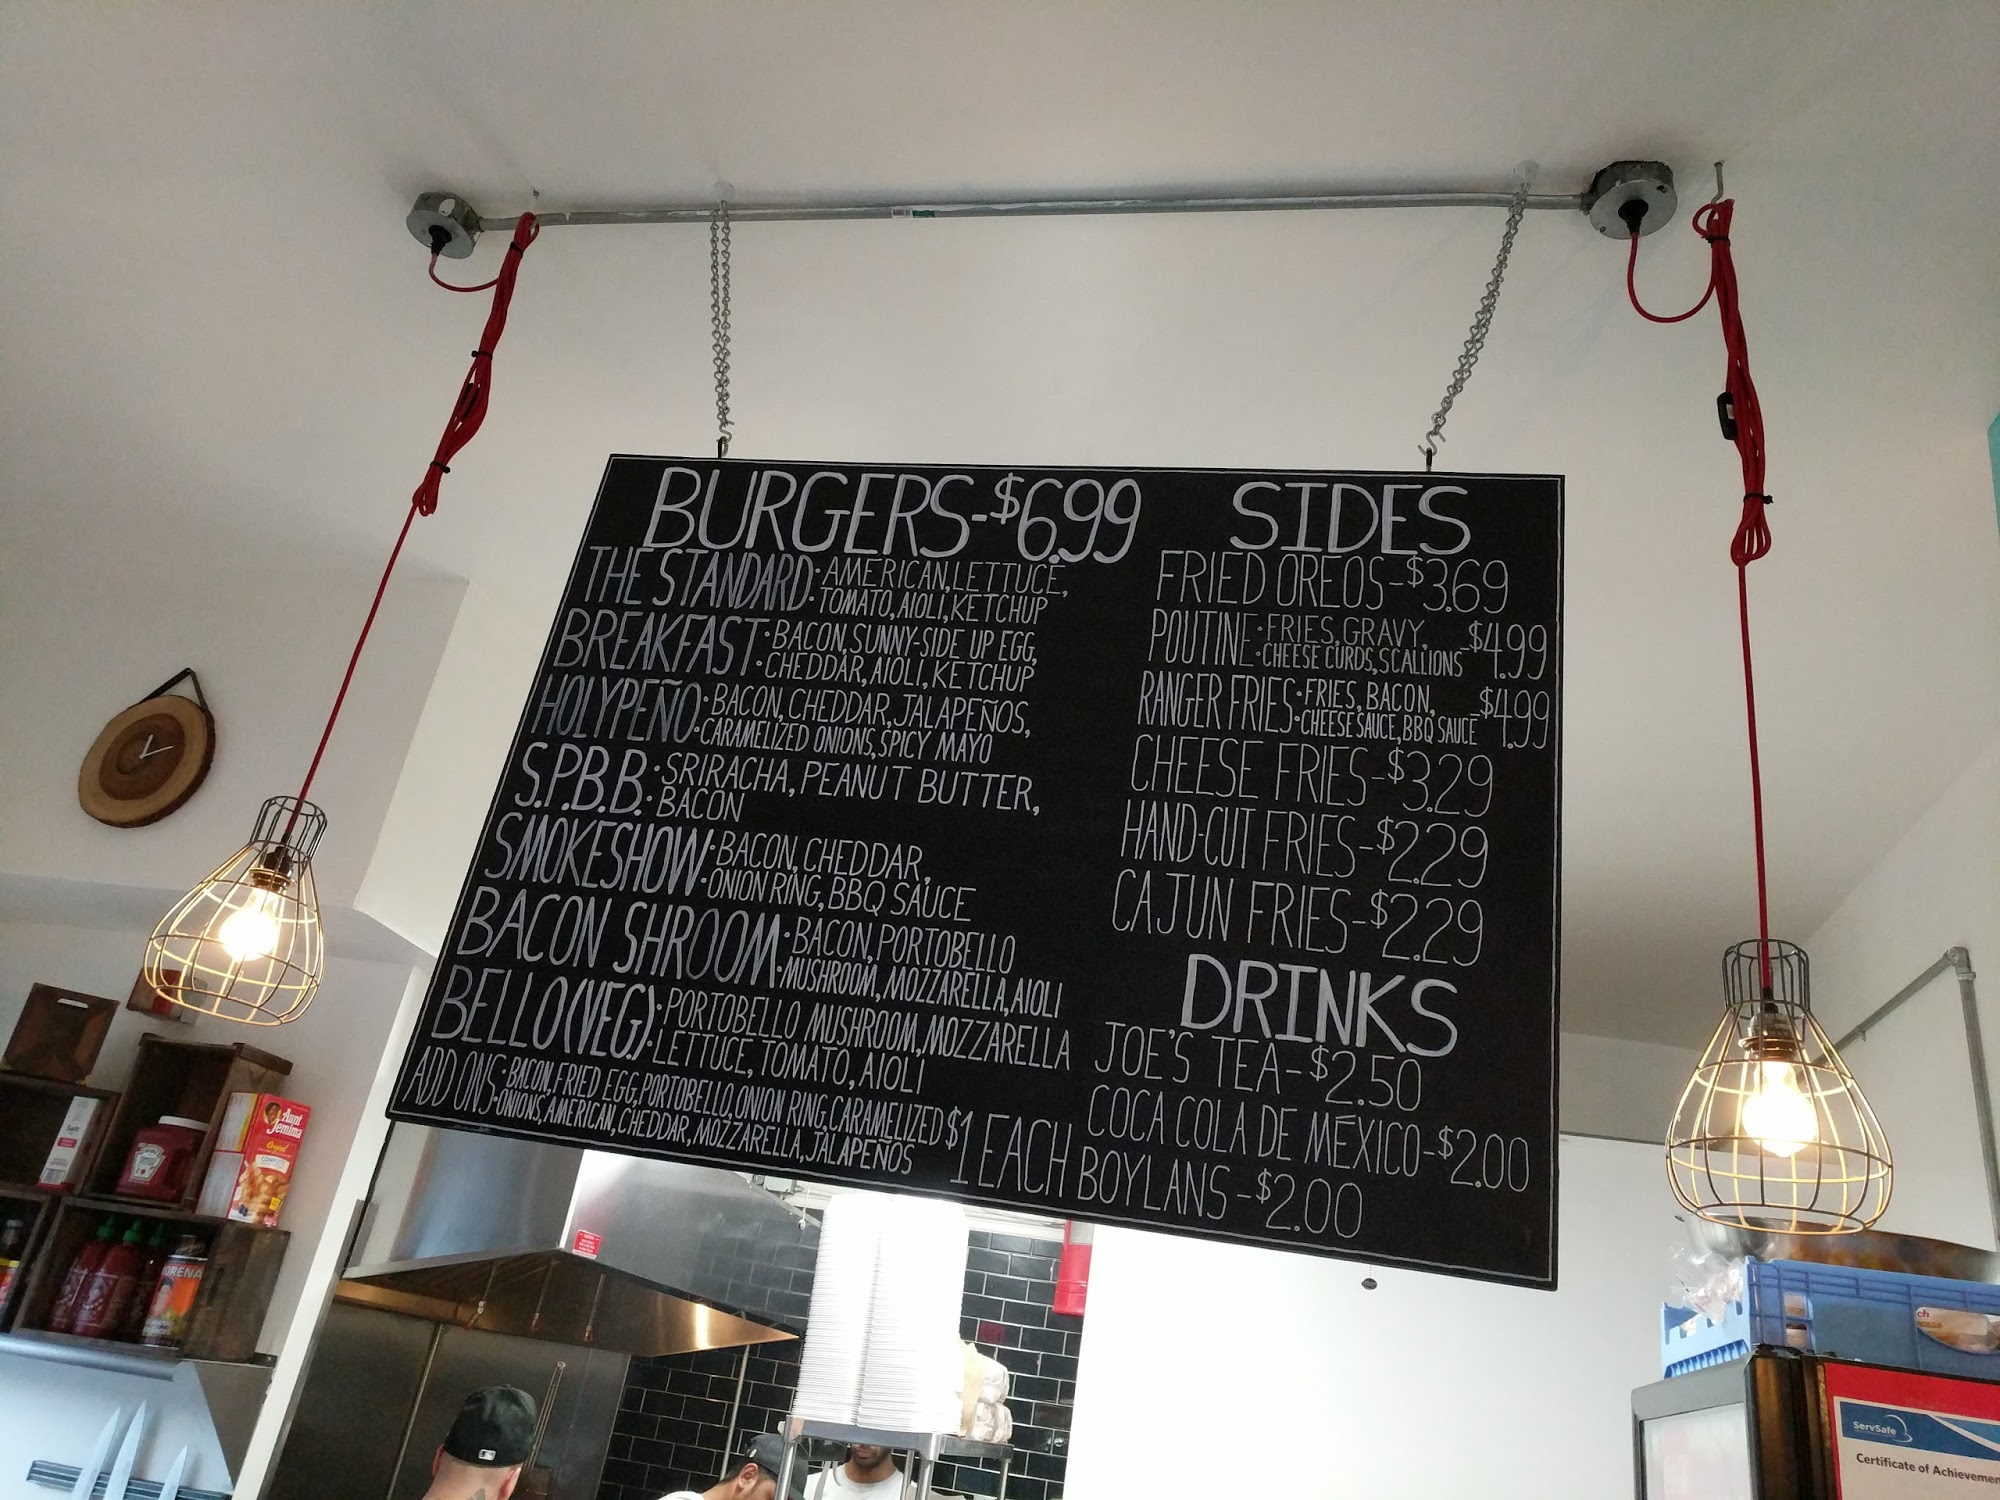 BURGERS-$6.99
THE STANDARD: AMERICAN, LETTUCE,
TOMATO, AIOLI, KETCHUP
BREAKFAST: BACON, SUNNY-SIDE UP EGG,
CHEDDAR, AIOLI, KETCHUP
HOLYPEÑO: BACON, CHEDDAR, JALAPEÑOS,
CARAMELIZED ONIONS, SPICY MAYO
S.P.B.B.: SRIRACHA, PEANUT BUTTER,
BACON
SMOKESHOW: BACON, CHEDDAR,
ONION RING, BBQ SAUCE
BACON SHROOM: BACON, PORTOBELLO
MUSHROOM, MOZZARELLA, AIOLI
BELLO (VEG.): PORTOBELLO MUSHROOM, MOZZARELLA
LETTUCE, TOMATO, AIOLI
ADD ONS: BACON, FRIED EGG, PORTOBELLO, ONION RING, CARAMELIZED
ONIONS, AMERICAN, CHEDDAR, MOZZARELLA, JALAPEÑOS
$1 EACH
SIDES
FRIED OREOS-$3.69
POUTINE: FRIES, GRAVY,
CHEESE CURDS, SCALLIONS -$4.99
RANGER FRIES: FRIES, BACON,
CHEESE SAUCE, BBQ SAUCE -$4.99
CHEESE FRIES-$3.29
HAND-CUT FRIES-$2.29
CAJUN FRIES-$2.29
DRINKS
JOE'S TEA-$2.50
COCA COLA DE MÉXICO-$2.00
BOYLANS-$2.00
Aunt
Jemima
Original
COMPLETE
Salt
HEINZ
ServSafe
Certificate of Achievemen